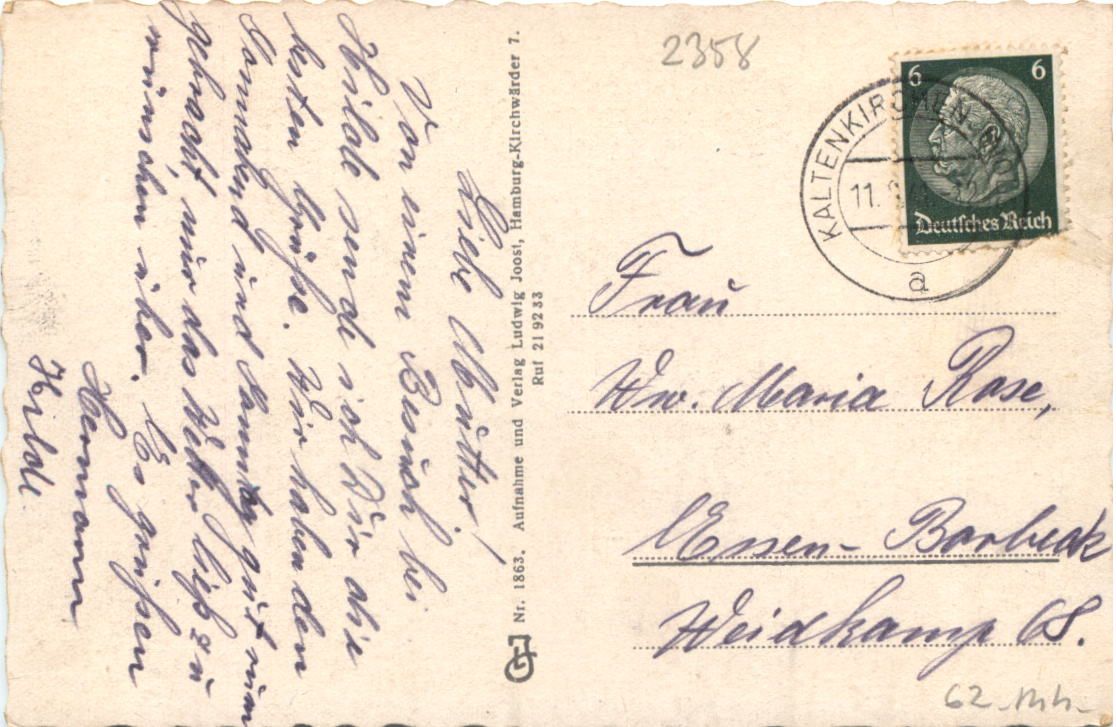 Liebe Mutter!
Von einem Besuch bei
Hilde sende ich Dir alle
besten Grüße. Wir haben den
Sonnabend und Sonntag gut rum
gebracht, nur das Wetter ließ zu
wünschen über. Es grüßen
Hermann
Hilde
Nr. 1863. Aufnahme und Verlag Ludwig Joost, Hamburg-Kirchwärder 7.
Ruf 219233
2358
6 6
Deutsches Reich
KALTENKIRCHEN
11.
a
Frau
Ww. Maria Rose,
Essen-Borbeck
Weidkamp 68.
62